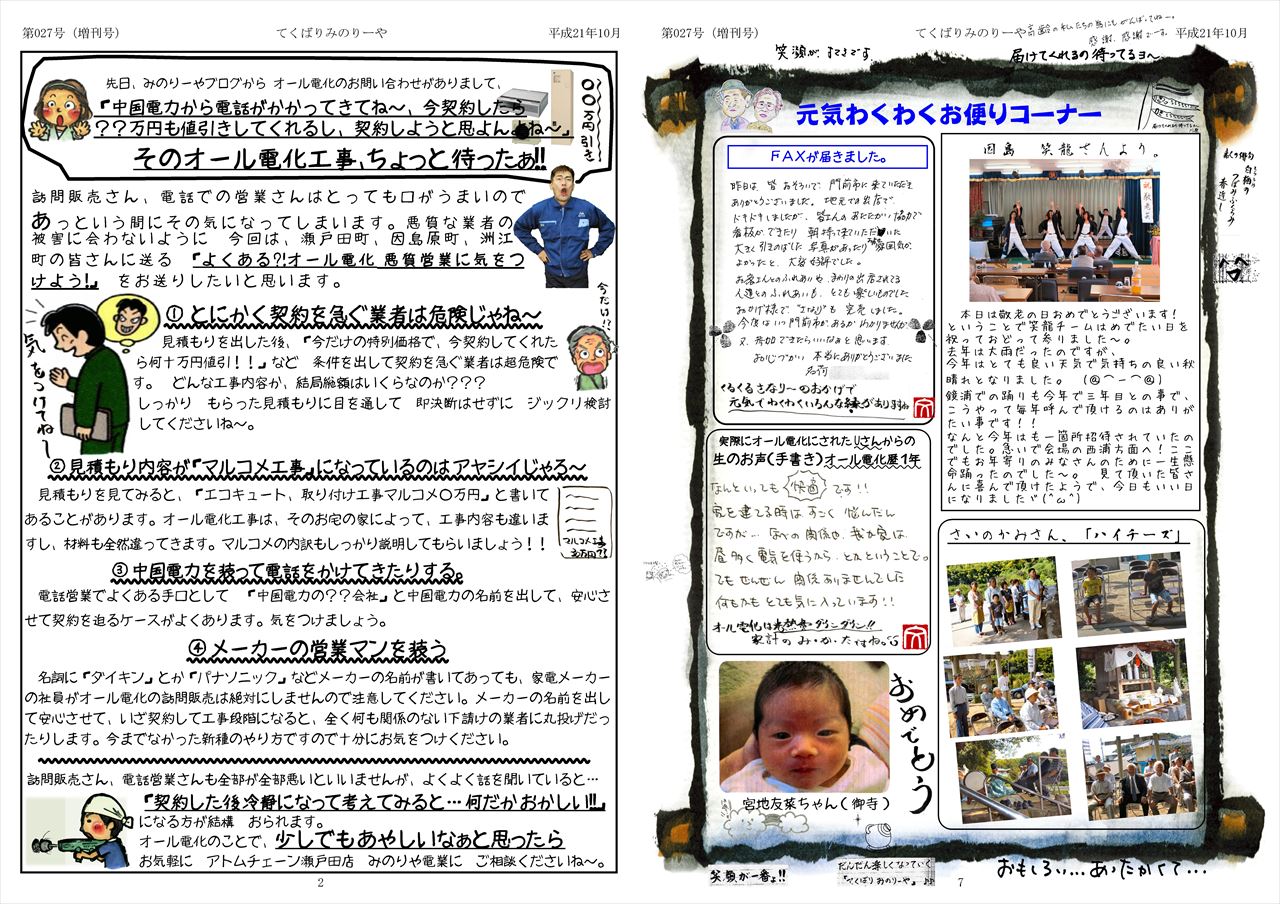 第027号（増刊号）
てくばりみのりーや
平成21年10月
先日、みのりーやブログから オール電化のお問い合わせがありまして、
『中国電力から電話がかかってきてね～、今契約したら
？？万円も値引きしてくれるし、契約しようと思よんよね～』
そのオール電化工事、ちょっと待ったぁ!!
〇〇万円引き
訪問販売さん、電話での営業さんはとっても口がうまいので
あっという間にその気になってしまいます。悪質な業者の
被害に会わないように 今回は、瀬戸田町、因島原町、洲江
町の皆さんに送る 『よくある?!オール電化 悪質営業に気をつ
けよう!』 をお送りしたいと思います。
今だけ!?
気をつけてね～
① とにかく契約を急ぐ業者は危険じゃね～
見積もりを出した後、『今だけの特別価格で、今契約してくれた
ら何十万円値引！！！』など 条件を出して契約を急ぐ業者は超危険で
す。 どんな工事内容か、結局総額はいくらなのか？？？
しっかり もらった見積もりに目を通して 即決断はせずに ジックリ検討
してくださいね～。
②見積もり内容が『マルコメ工事』になっているのはアヤシイじゃろ～
見積もりを見てみると、『エコキュート、取り付け工事マルコメ〇万円』と書いて
あることがあります。オール電化工事は、そのお宅の家によって、工事内容も違いま
すし、材料も全然違ってきます。マルコメの内訳もしっかり説明してもらいましょう！！
マルコメ工事
③ 中国電力を装って電話をかけてきたりする。
電話営業でよくある手口として 『中国電力の？？会社』と中国電力の名前を出して、安心さ
せて契約を迫るケースがよくあります。気をつけましょう。
④ メーカーの営業マンを装う
名詞に『ダイキン』とか『パナソニック』などメーカーの名前が書いてあっても、家電メーカー
の社員がオール電化の訪問販売は絶対にしませんので注意してください。メーカーの名前を出し
て安心させて、いざ契約して工事段階になると、全く何も関係のない下請けの業者に丸投げだっ
たりします。今までなかった新種のやり方ですので十分にお気をつけください。
訪問販売さん、電話営業さんも全部が全部悪いといいませんが、よくよく話を聞いていると…
『契約した後冷静になって考えてみると…何だかおかしい!!』
になる方が結構 おられます。
オール電化のことで、少しでもあやしいなぁと思ったら
お気軽に アトムチェーン瀬戸田店 みのりや電業に ご相談くださいね～。
2
第027号（増刊号）
てくばりみのりーや
平成21年10月
高齢の私たちの為にもがんばってね～。
感謝、感謝です。
笑顔が、すてきです。
届けてくれるの待ってるヨ～
元気わくわくお便りコーナー
ＦＡＸが届きました。
昨日は、皆おそろいで、門前市に来ていただき
ありがとうございました。地元での出店で、
ドキドキしましたが、皆さんのあたたかい協力で
看板ができたり 朝持って来ていただいた
大きく引きのばした写真があったり 雰囲気が
よかったと、大変好評でした。
お客さんとのふれあいや、まわりの出店されてる
人達とのふれあいも、とても楽しいものでした
おかげ様で "さなり" も 完売しました。
今度はいつ門前市があるかわかりませんが
又、参加できたらいいなぁと思います。
お心づかい 本当にありがとうございました
くるくるさなり～のおかげで
元気でわくわくいろんな縁がありますね
実際にオール電化にされたＵさんからの
生のお声(手書き)オール電化歴１年
なんといっても 快適 です!!
家を建てる時は、すごく 悩んだん
ですが… 昼の関係や、我が家は
昼多く電気を使うから、とかということで。
でもぜんぜん 関係ありませんでした
何もかも とても気に入っています!!
オール電化は光熱費ダウンダウン!!
家計の み・か・た ですね。
おめでとう
宮地友菜ちゃん(御寺)
因島 笑龍さんより。
本日は敬老の日おめでとうございます!
ということで笑龍チームはめでたい日を
祝っておどって参りました～。
去年は大雨だったのですが、
今年はとても良い天気で気持ちの良い秋
晴れとなりました。 (＠⌒ー⌒＠)
鏡浦での踊りも今年で三年目との事で、
こうやって毎年呼んで頂けるのはありが
たい事です！！
なんと今年はも一箇所招待されていたの
でした。急いで会場の西浦方面へ！ここ
でもお年寄りのみなさんのために一生懸
命踊ったのでした～。 見て頂いた皆さ
んに喜んで頂けたようで、今日もいい日
になりましたヾ(^ω^)
さいのかみさん、「ハイチーズ」
笑顔が一番よ!!
だんだん楽しくなっていく
『てくばりみのりーや』
7
おもしろい…あったかくて…